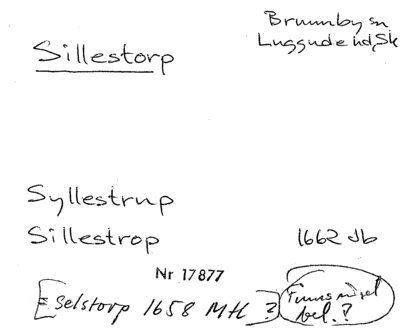 Brunnby sn
Luggude hd, Sk
Sillestorp
Syllestrup
Sillestrop 1662 Jb
Nr 17877
[= Selstorp 1658 MH ?]
bel. ?